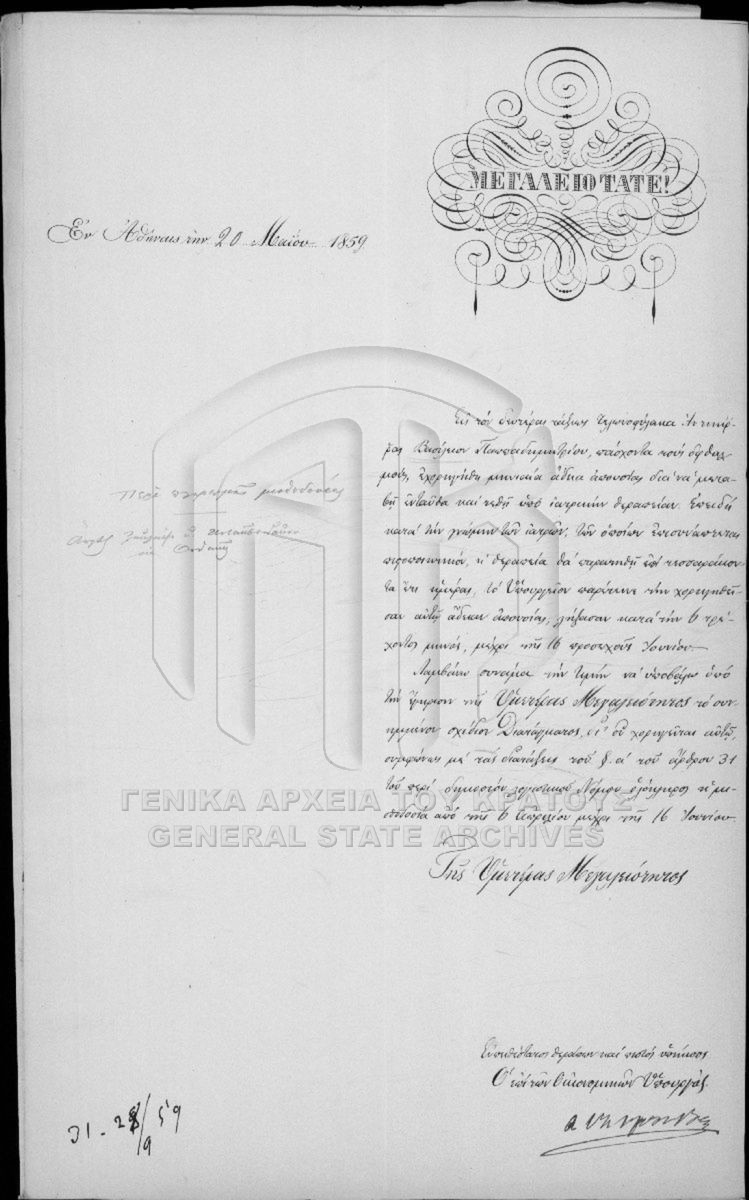 ΜΕΓΑΛΕΙΟΤΑΤΕ!
Ἐν Ἀθήναις την 20 Μαΐου 1859
Εἰς τὸν δευτέρας τάξεως τελωνοφύλακα
Βασίλειον Παππαδημητρίου, πάσχοντα τοὺς ὀφθαλ-
μούς, ἐχορηγήθη μηνιαία ἄδεια ἀπουσίας διὰ νὰ μετα-
βῇ ἐνταῦθα καὶ τεθῇ ὑπὸ ἰατρικὴν θεραπείαν. Ἐπειδὴ
κατὰ τὴν γνώμην τῶν ἰατρῶν, τῶν ὁποίων ἐπισυνάπτεται
πιστοποιητικόν, ἡ θεραπεία θὰ παραταθῇ ἐπὶ τεσσαράκον-
τα ἔτι ἡμέρας, τὸ Ὑπουργεῖον παρέτεινε τὴν χορηγηθεῖ-
σαν αὐτῷ ἄδειαν ἀπουσίας, λήξασαν κατὰ τὴν 6 τρέ-
χοντος μηνός, μέχρι τῆς 16 προσεχοῦς Ἰουνίου.
Λαμβάνω συνάμα τὴν τιμὴν νὰ ὑποβάλω ὑπὸ
τὴν ἔγκρισιν τῆς Ὑμετέρας Μεγαλειότητος τὸ συν-
ημμένον σχέδιον Διατάγματος, δι' οὗ χορηγεῖται αὐτῷ,
συμφώνως μὲ τὰς διατάξεις τοῦ §. α' τοῦ ἄρθρου 31
τοῦ περὶ δημοσίου λογιστικοῦ Νόμου ὁλόκληρος ἡ μι-
σθοδοσία ἀπὸ τῆς 6 Ἀπριλίου μέχρι τῆς 16 Ἰουνίου.
Περὶ πληρωμῆς μισθοδοσίας
ΓΕΝΙΚΑ ΑΡΧΕΙΑ ΤΟΥ ΚΡΑΤΟΥΣ
GENERAL STATE ARCHIVES
Τῆς Ὑμετέρας Μεγαλειότητος
Εὐπειθέστατος θεράπων καὶ πιστὸς ὑπήκοος
Ὁ ἐπὶ τῶν Οἰκονομικῶν Ὑπουργός